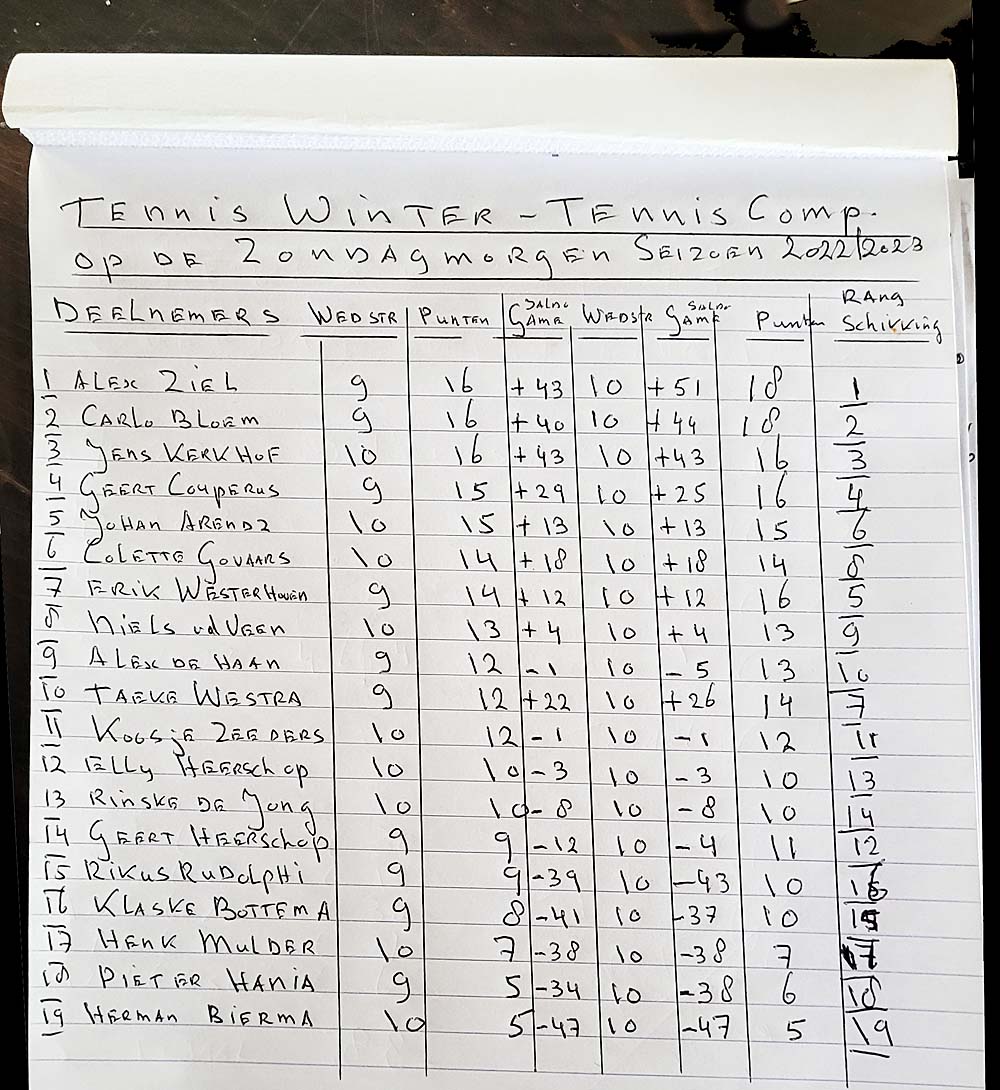 TENNIS WINTER - TENNIS COMP.
OP DE ZONDAGMORGEN SEIZOEN 2022/2023
DEELNEMERS WEDSTR PUNTEN SALDO GAME WEDSTR SALDO GAME PUNTEN RANG SCHIKKING
1 ALEX ZIEL 9 16 +43 10 +51 18 1
2 CARLO BLOEM 9 16 +40 10 +44 18 2
3 JENS KERKHOF 10 16 +43 10 +43 16 3
4 GEERT COUPERUS 9 15 +29 10 +25 16 4
5 JOHAN ARENDZ 10 15 +13 10 +13 15 6
6 COLETTE GOVAARS 10 14 +18 10 +18 14 8
7 ERIK WESTERHOVEN 9 14 +12 10 +12 16 5
8 NIELS vd VEEN 10 13 +4 10 +4 13 9
9 ALEX DE HAAN 9 12 -1 10 -5 13 10
10 TAEKE WESTRA 9 12 +22 10 +26 14 7
11 KOOSJE ZEEDERS 10 12 -1 10 -1 12 11
12 ELLY HEERSCHOP 10 10 -3 10 -3 10 13
13 RINSKE DE JONG 10 10 -8 10 -8 10 14
14 GEERT HEERSCHOP 9 9 -12 10 -4 11 12
15 RIKUS RUDOLPHI 9 9 -39 10 -43 10 16
16 KLASKE BOTTEMA 9 8 -41 10 -37 10 15
17 HENK MULDER 10 7 -38 10 -38 7 17
18 PIETER HANIA 9 5 -34 10 -38 6 18
19 HERMAN BIERMA 10 5 -47 10 -47 5 19